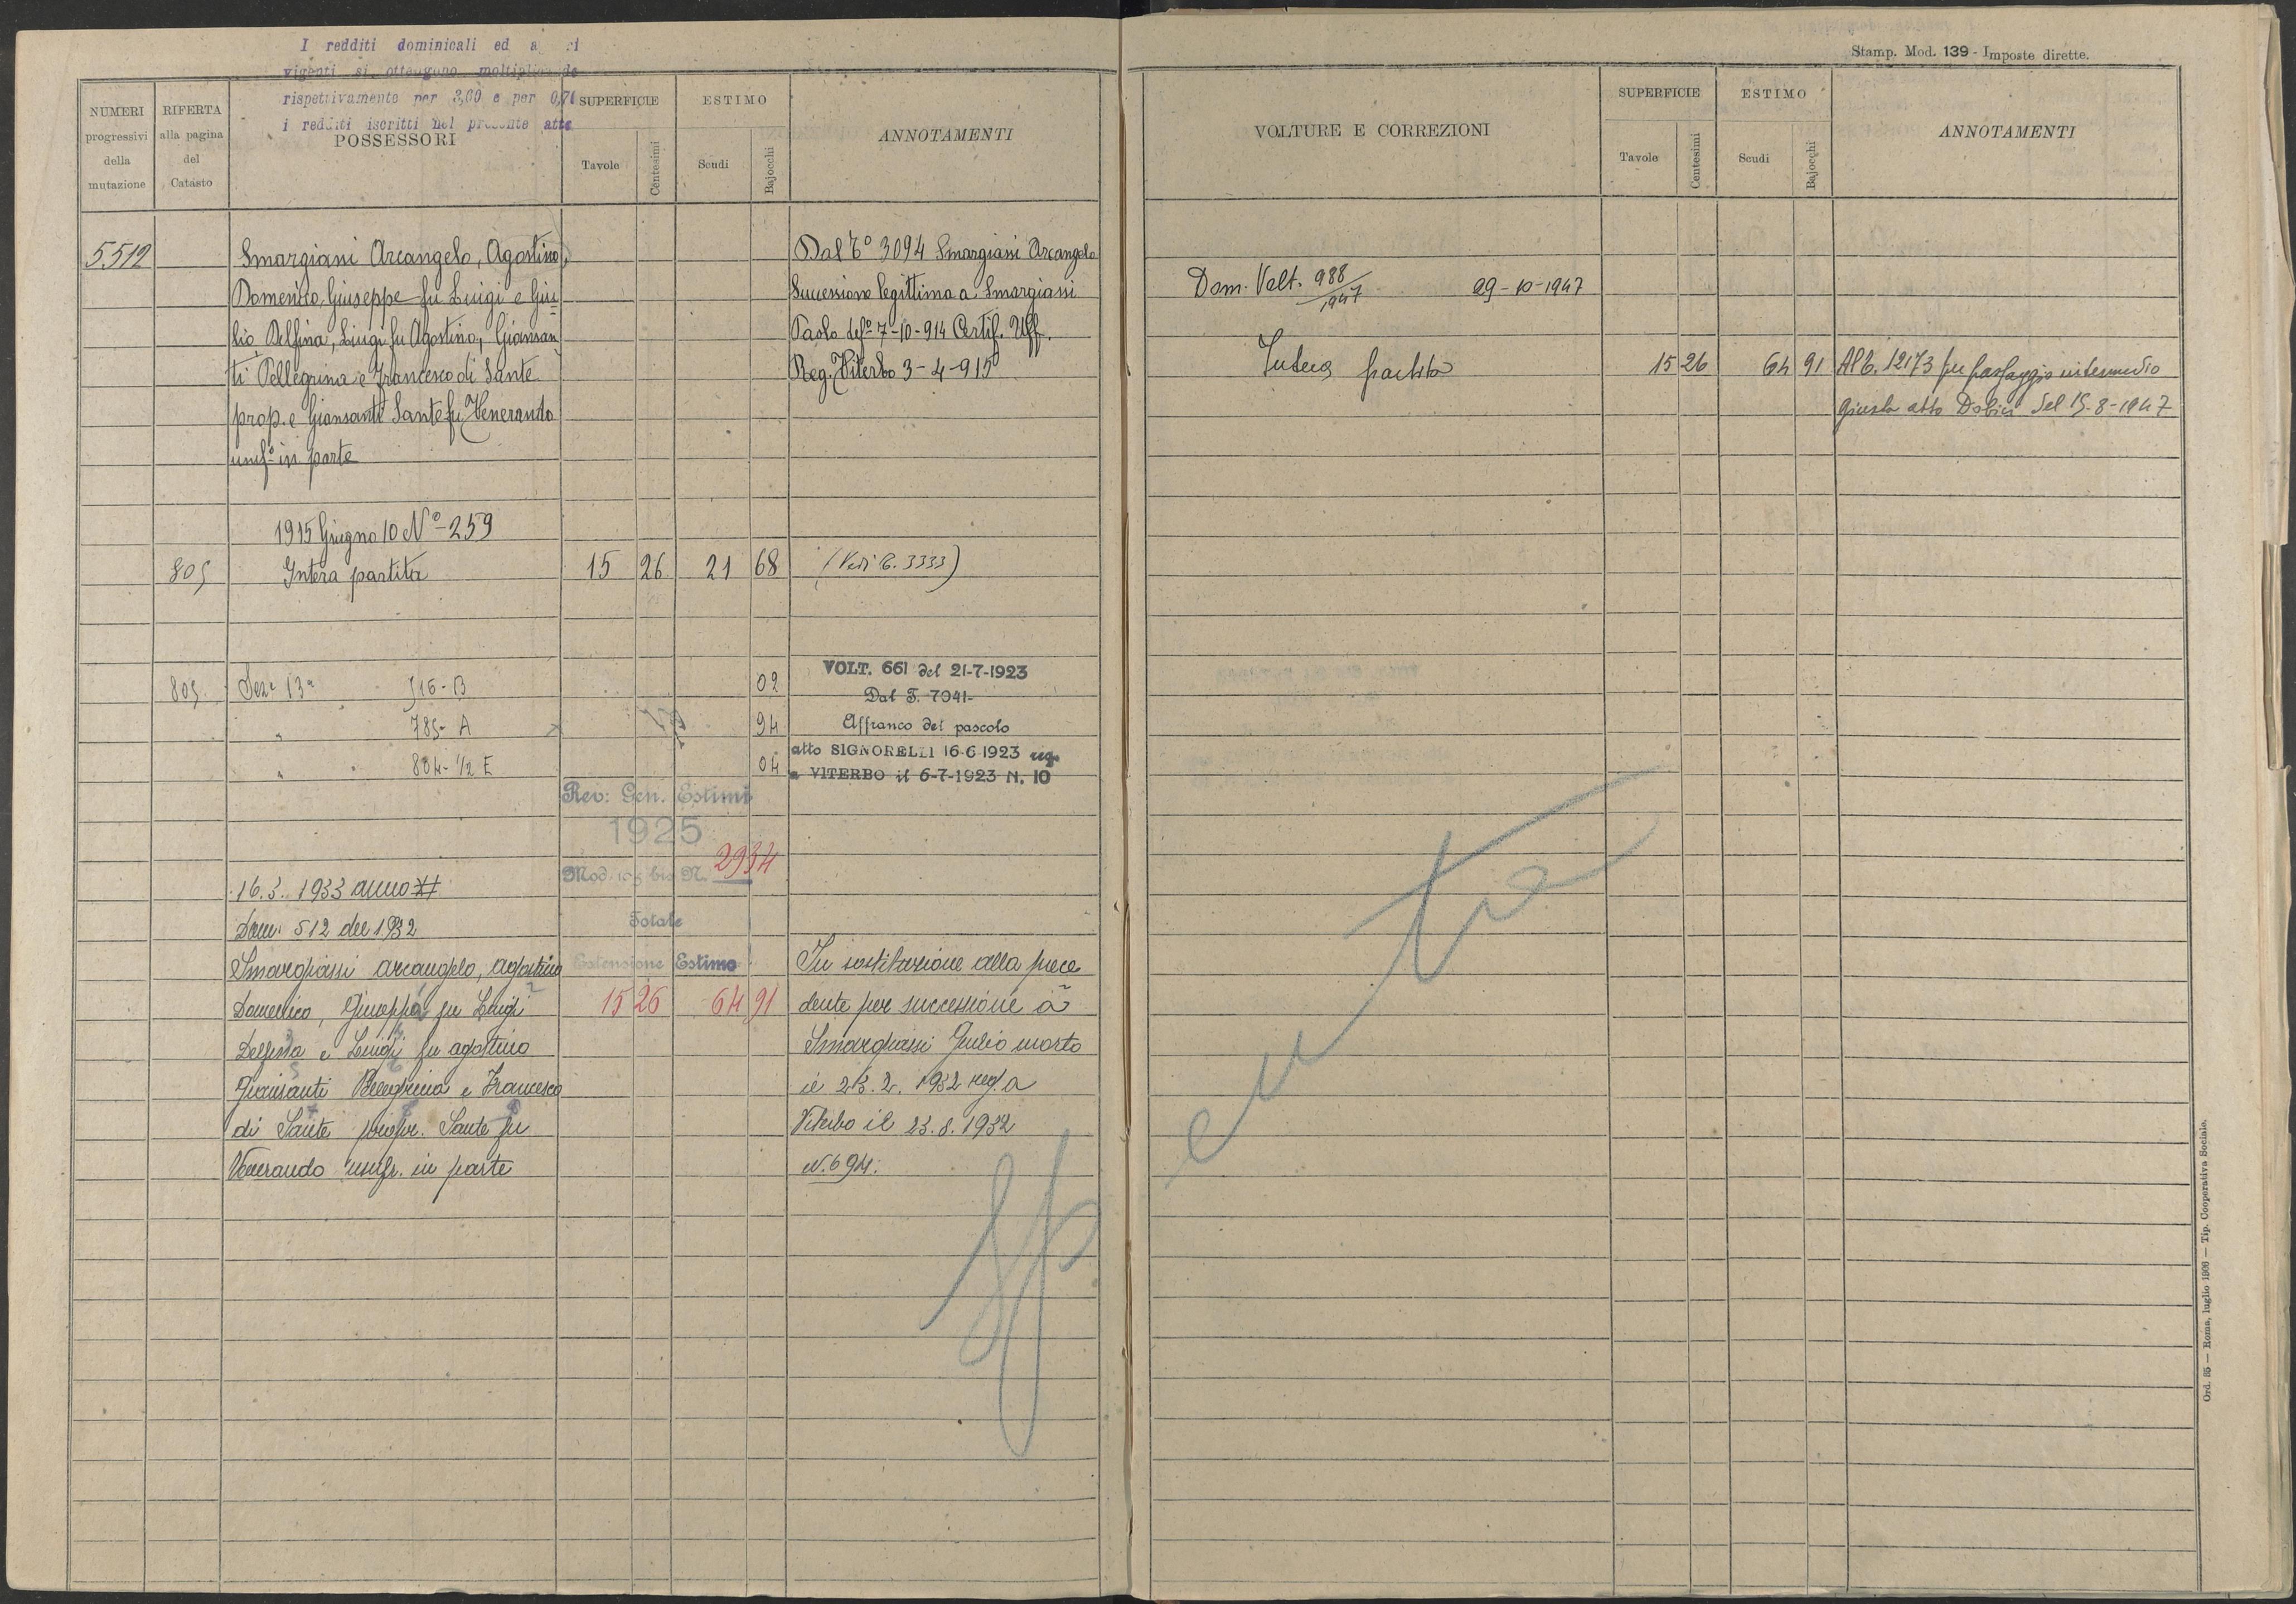 I redditi dominicali ed a
vigenti si ottengono moltiplicando
rispettivamente per 3,60 e per 0,70
i redditi iscritti nel presente atto
NUMERI progressivi della mutazione
RIFERTA alla pagina del Catasto
POSSESSORI
SUPERFICIE
Tavole
Centesimi
ESTIMO
Scudi
Bajocchi
ANNOTAMENTI
5512
Smargiassi Arcangelo, Agostino,
Domenico, Giuseppe fu Luigi e Giu=
lio, Delfina, Luigi fu Agostino, Giansan
ti Pellegrina e Francesco di Sante
prop. e Giansanti Sante fu Venerando
usuf.o in parte
Dal T.o 3094 Smargiassi Arcangelo
Successione legittima a Smargiassi
Paolo def.o 7-10-914 Certif. Uff.
Reg. Viterbo 3-4-915
1915 Giugno 10 No 259
805 Intera partita 15 26 21 68 (Vedi T. 3333)
805 Seze 13a 516-B 02
" 785- A 94
" 804- 1/2 E 04
VOLT. 661 del 21-7-1923
Dal T. 7041-
Affranco del pascolo
atto SIGNORELLI 16-6-1923 reg.
a VITERBO il 6-7-1923 N. 10
Rev: Gen. Estimi
1925
Mod. 109 bis N. 2934
Totale
Estensione Estimo
15 26 64 91
16.3.1933 anno XI
Dom. 512 del 1932
Smargiassi Arcangelo, Agostino
Domenico, Giuseppe fu Luigi
Delfina e Luigi fu Agostino
Giansanti Pellegrina e Francesco
di Sante propr. Sante fu
Venerando usufr. in parte
In sostituzione alla prece
dente per successione a
Smargiassi Giulio morto
il 23.2.1932 reg. a
Viterbo il 23.8.1932
N. 694.
Stamp. Mod. 139 - Imposte dirette.
VOLTURE E CORREZIONI
SUPERFICIE
Tavole
Centesimi
ESTIMO
Scudi
Bajocchi
ANNOTAMENTI
Dom. Volt. 988/1947 29-10-1947
Intera partita 15 26 64 91 Al T. 12173 per passaggio intermedio
giusta atto Dobici del 15-8-1947
Spenta
Ord. 55 — Roma, luglio 1906 — Tip. Cooperativa Sociale.